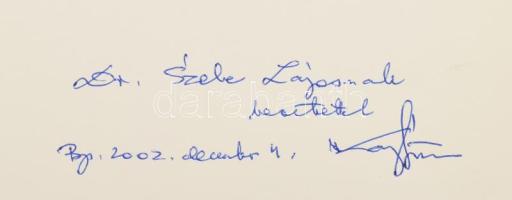 Dr. Szebe Lajosnak
szeretettel
Bp. 2002. december 4.
darabanth